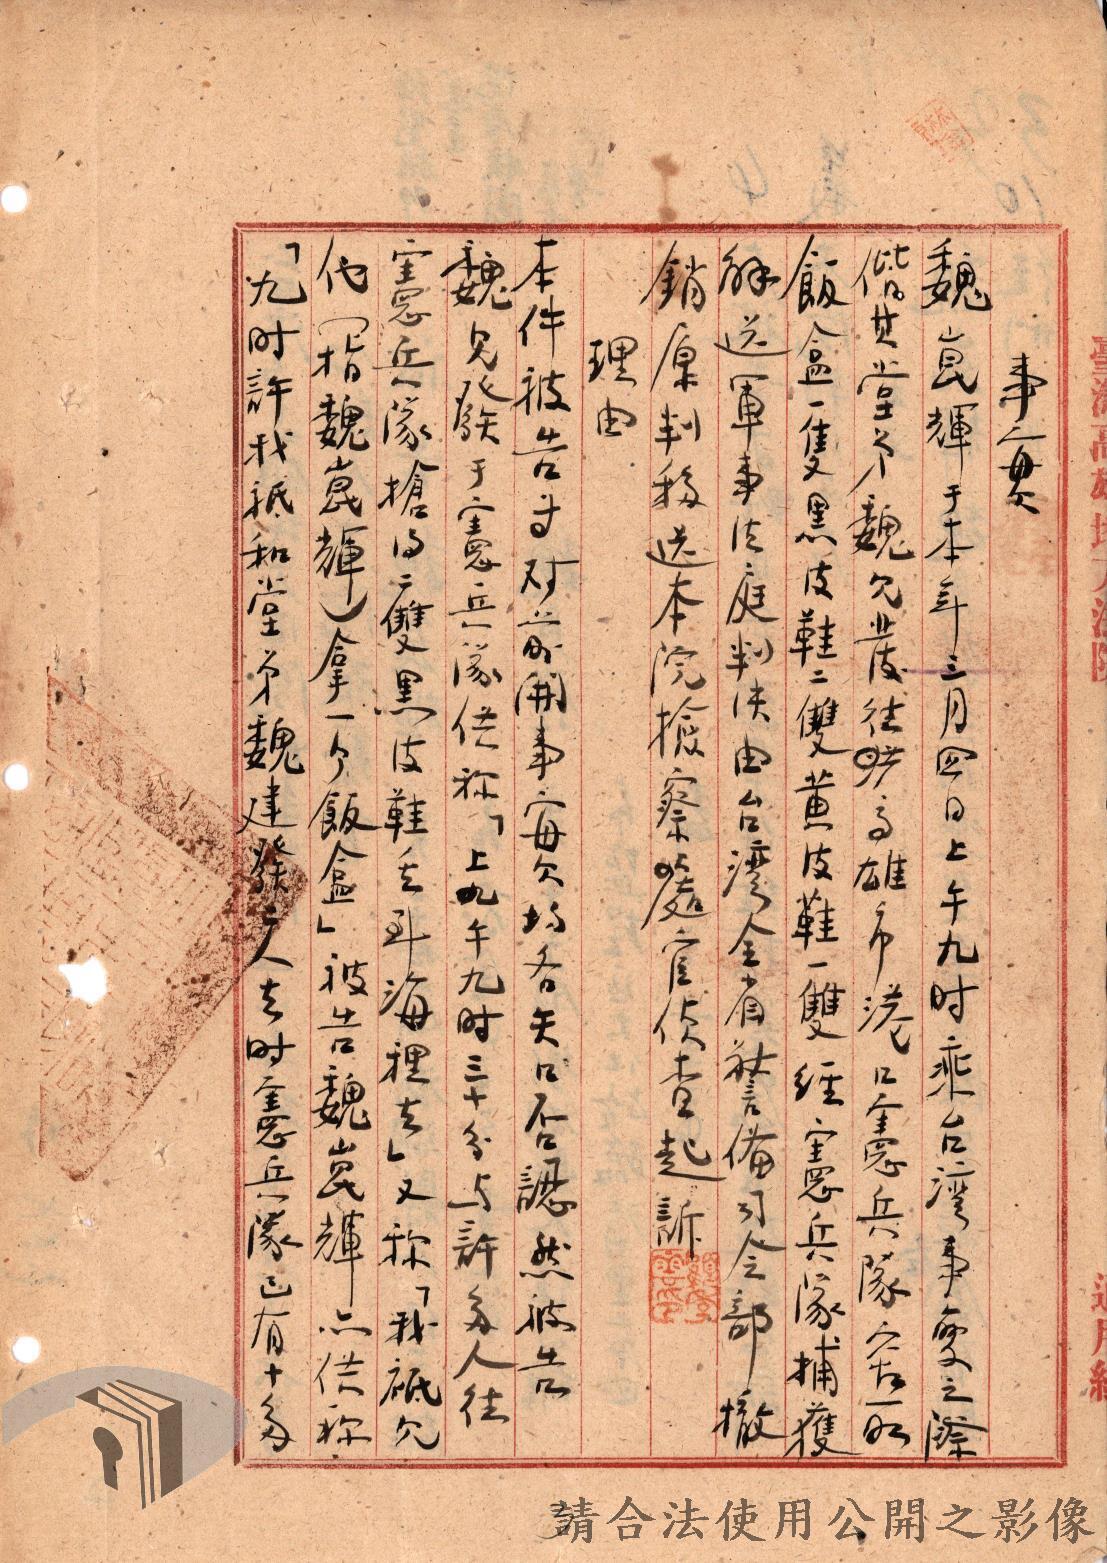 事實
魏崑輝于本年三月四日上午九时乘台湾事变之際
偕其堂弟魏見發往 高雄市港口憲兵隊 取
飯盒一隻黑皮鞋二雙黄皮鞋一雙經憲兵隊捕獲
解送軍事法庭判決由台湾全省警備司令部撤
銷原判移送本院檢察處官偵查起訴
理由
本件被告 对 開事實欠均各矢口否認然被告
魏見發于憲兵隊供称「上九午九时三十分与許多人往
憲兵隊搶得二雙黑皮鞋丢到海裡去」又称「我 見
他(指魏崑輝)拿一个飯盒」被告魏崑輝亦供称
「九时許我 和堂弟魏建發二人去时憲兵隊已有十多
臺灣高雄地方法院
適用紙
請合法使用公開之影像